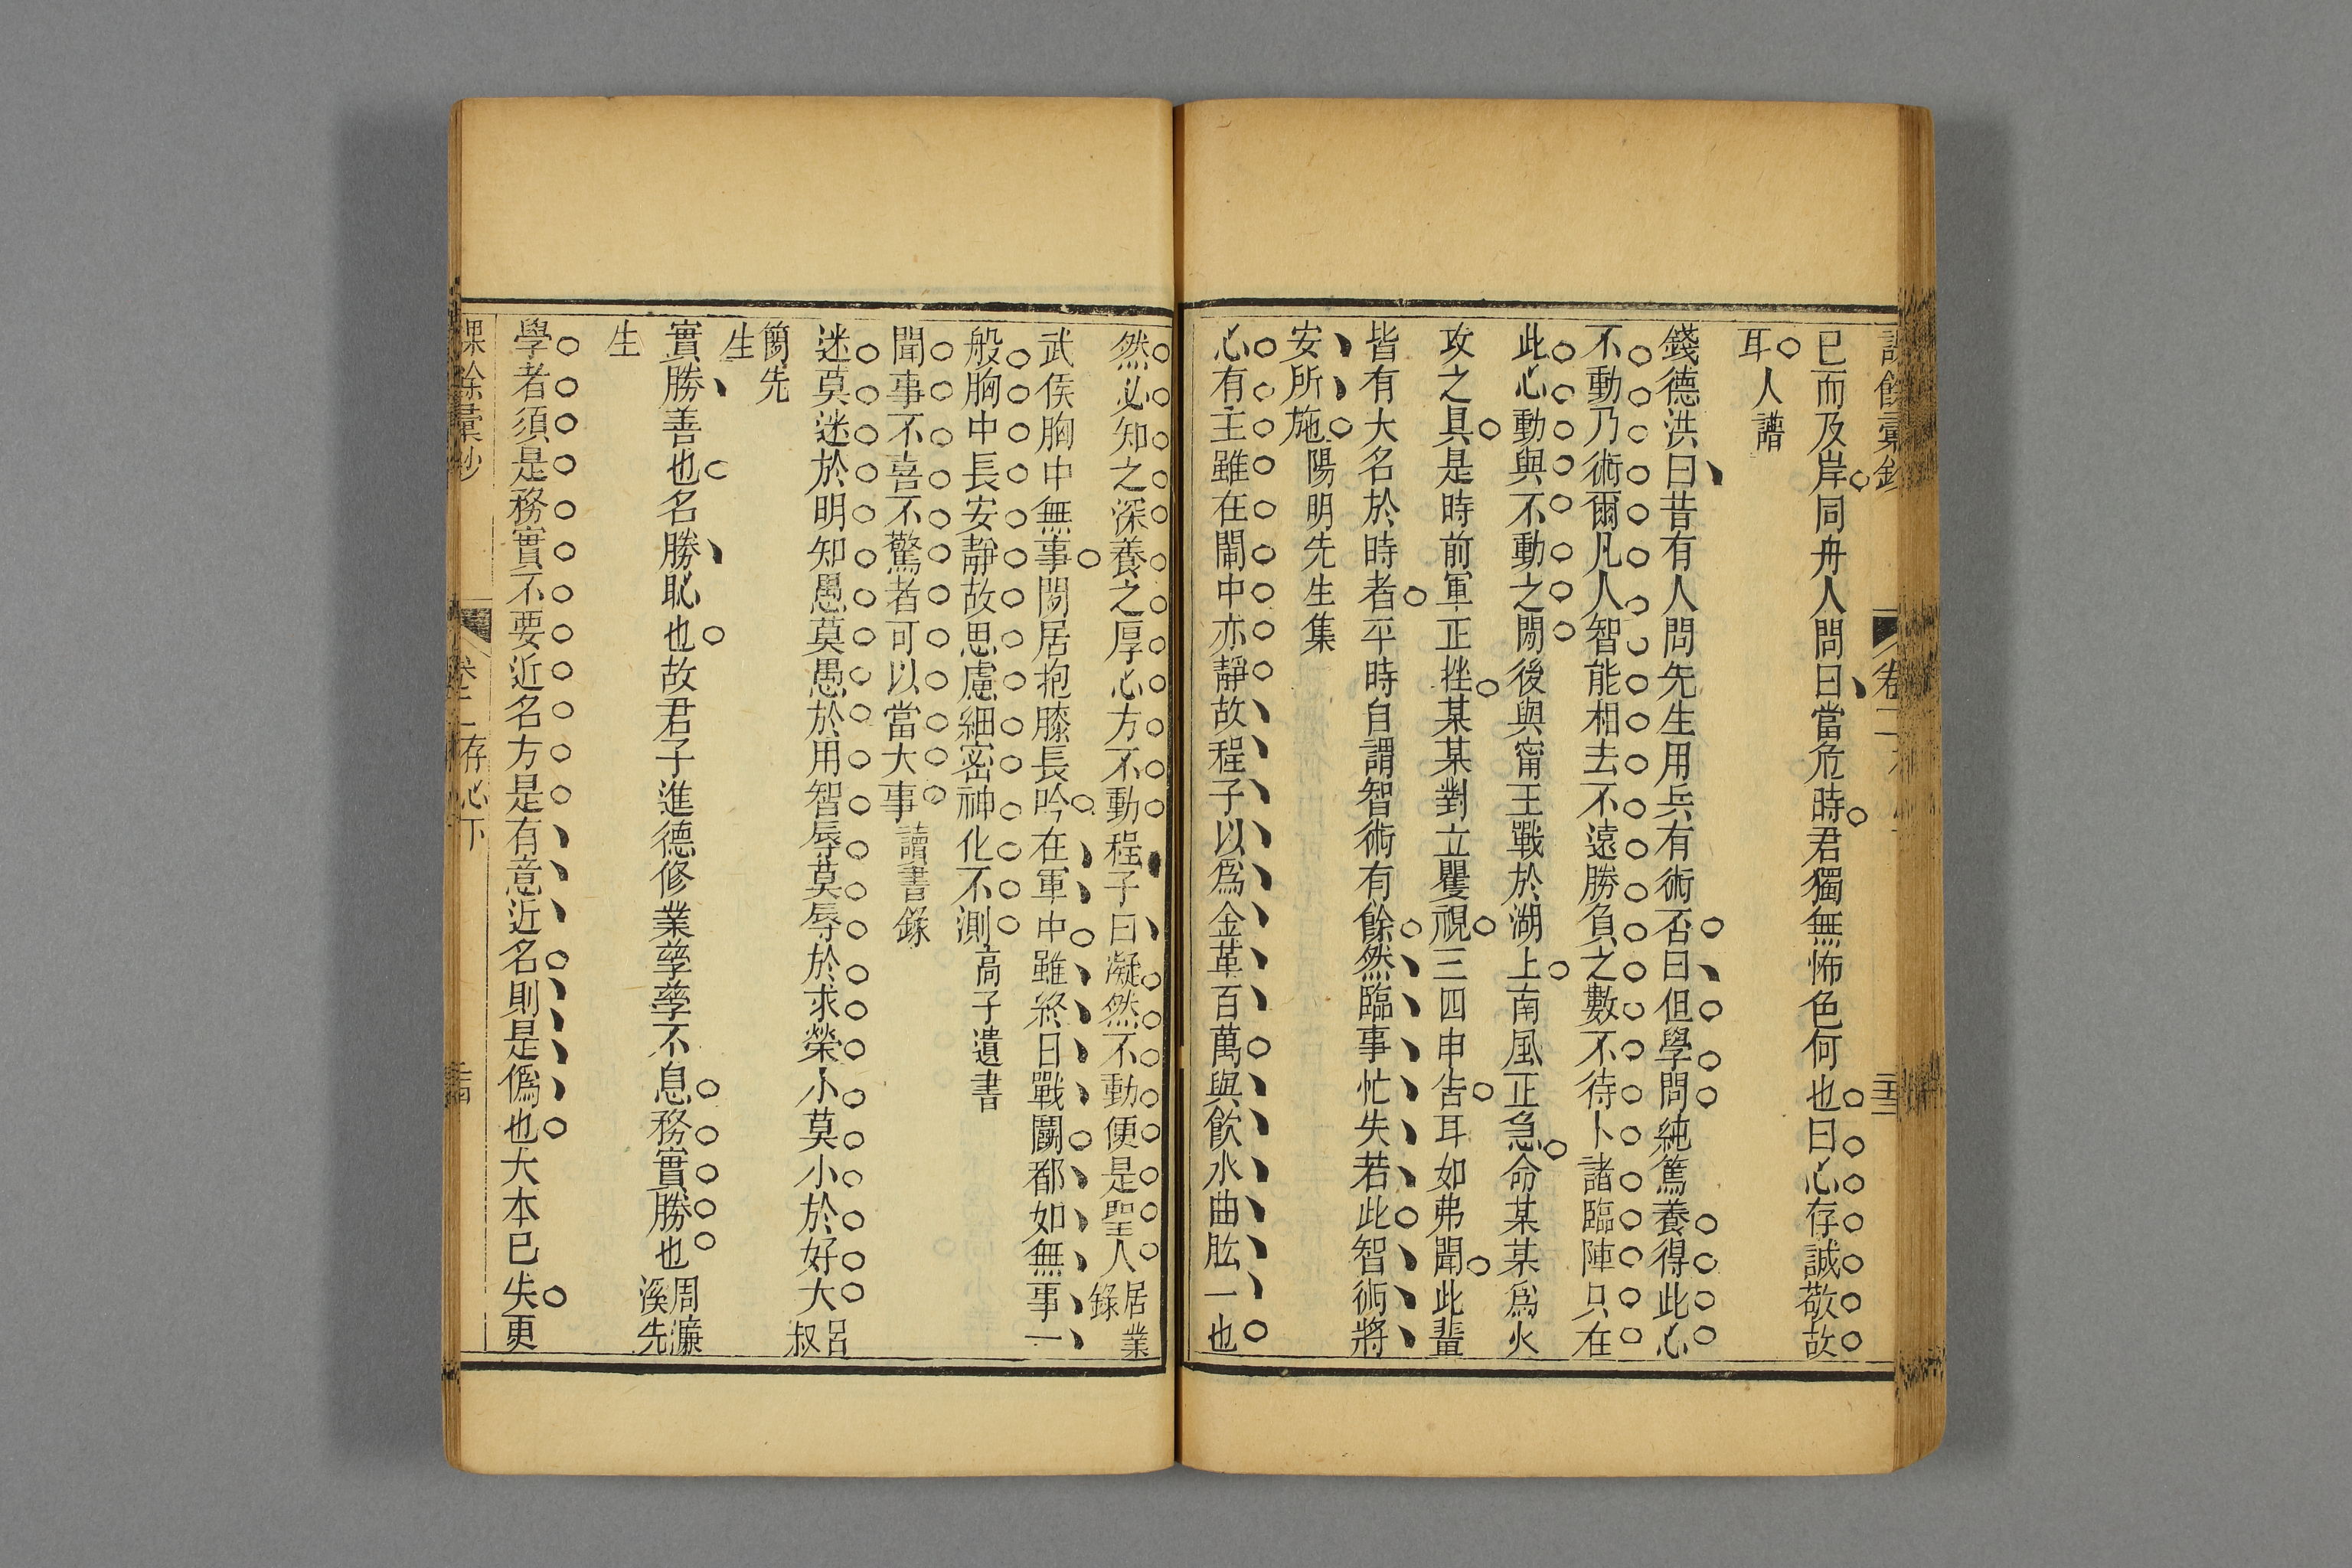 卷二
已而及岸同舟人問曰當危時君獨無怖色何也曰心存誠敬故
耳人譜
錢德洪曰昔有人問先生用兵有術否曰但學問純篤養得此心
不動乃術爾凡人智能相去不遠勝負之數不待卜諸臨陣只在
此心動與不動之閒後與甯王戰於湖上南風正急命某某爲火
攻之具是時前軍正挫某某對立矍視三四申告耳如弗聞此輩
皆有大名於時者平時自謂智術有餘然臨事忙失若此智術將
安所施陽明先生集
心有主雖在鬧中亦靜故程子以爲金革百萬與飮水曲肱一也
然必知之深養之厚心方不動程子曰凝然不動便是聖人居業錄
武侯胸中無事閒居抱膝長吟在軍中雖終日戰鬭都如無事一
般胸中長安靜故思慮細密神化不測高子遺書
聞事不喜不驚者可以當大事讀書錄
迷莫迷於明知愚莫愚於用智辱莫辱於求榮小莫小於好大呂叔
簡先生
實勝善也名勝恥也故君子進德修業孳孳不息務實勝也周濂溪先
生
學者須是務實不要近名方是有意近名則是僞也大本已失更
課餘彙鈔 卷二 存心下 二十四